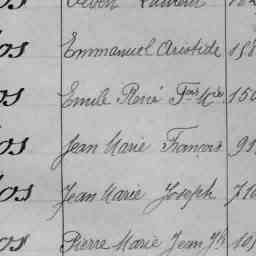 os Laurent
os Emmanuel Aristide 158
os Emile René Fois Mie 150
os Jean Marie François 91
os Jean Marie Joseph 710
os Pierre Marie Jean Jh 101